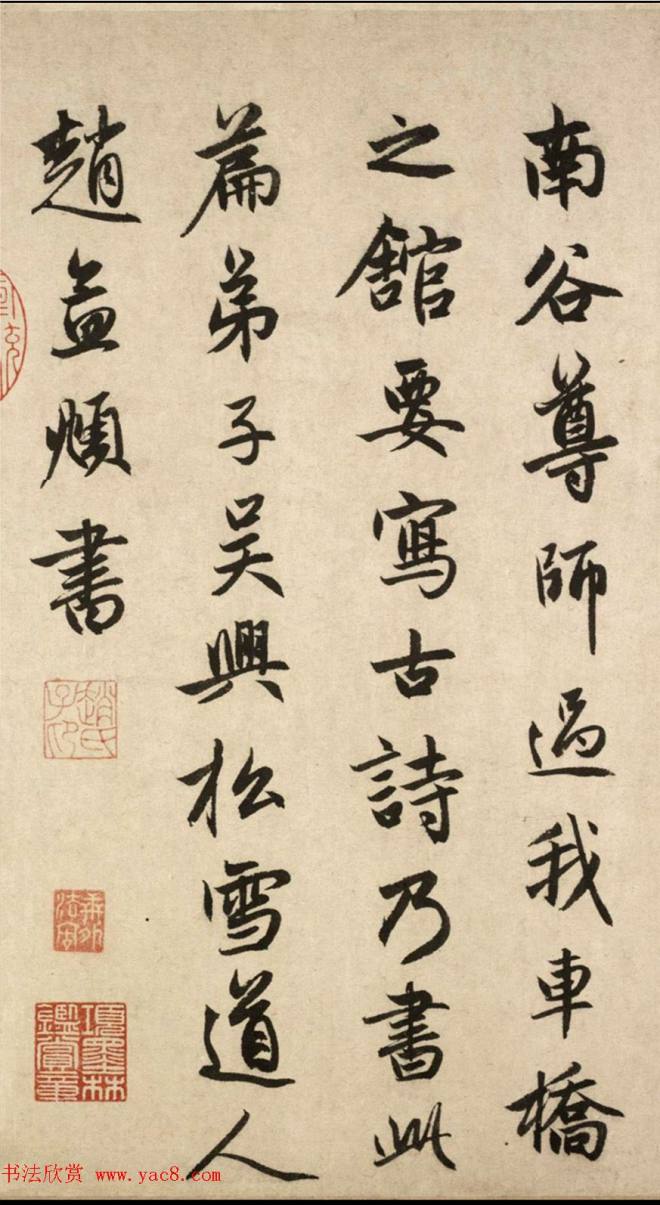 南谷尊師過我車橋
之舘要寫古詩乃書此
篇弟子吳興松雪道人
趙孟頫書
趙氏子昂
項墨林鑑賞章
书法欣赏 www.yac8.com